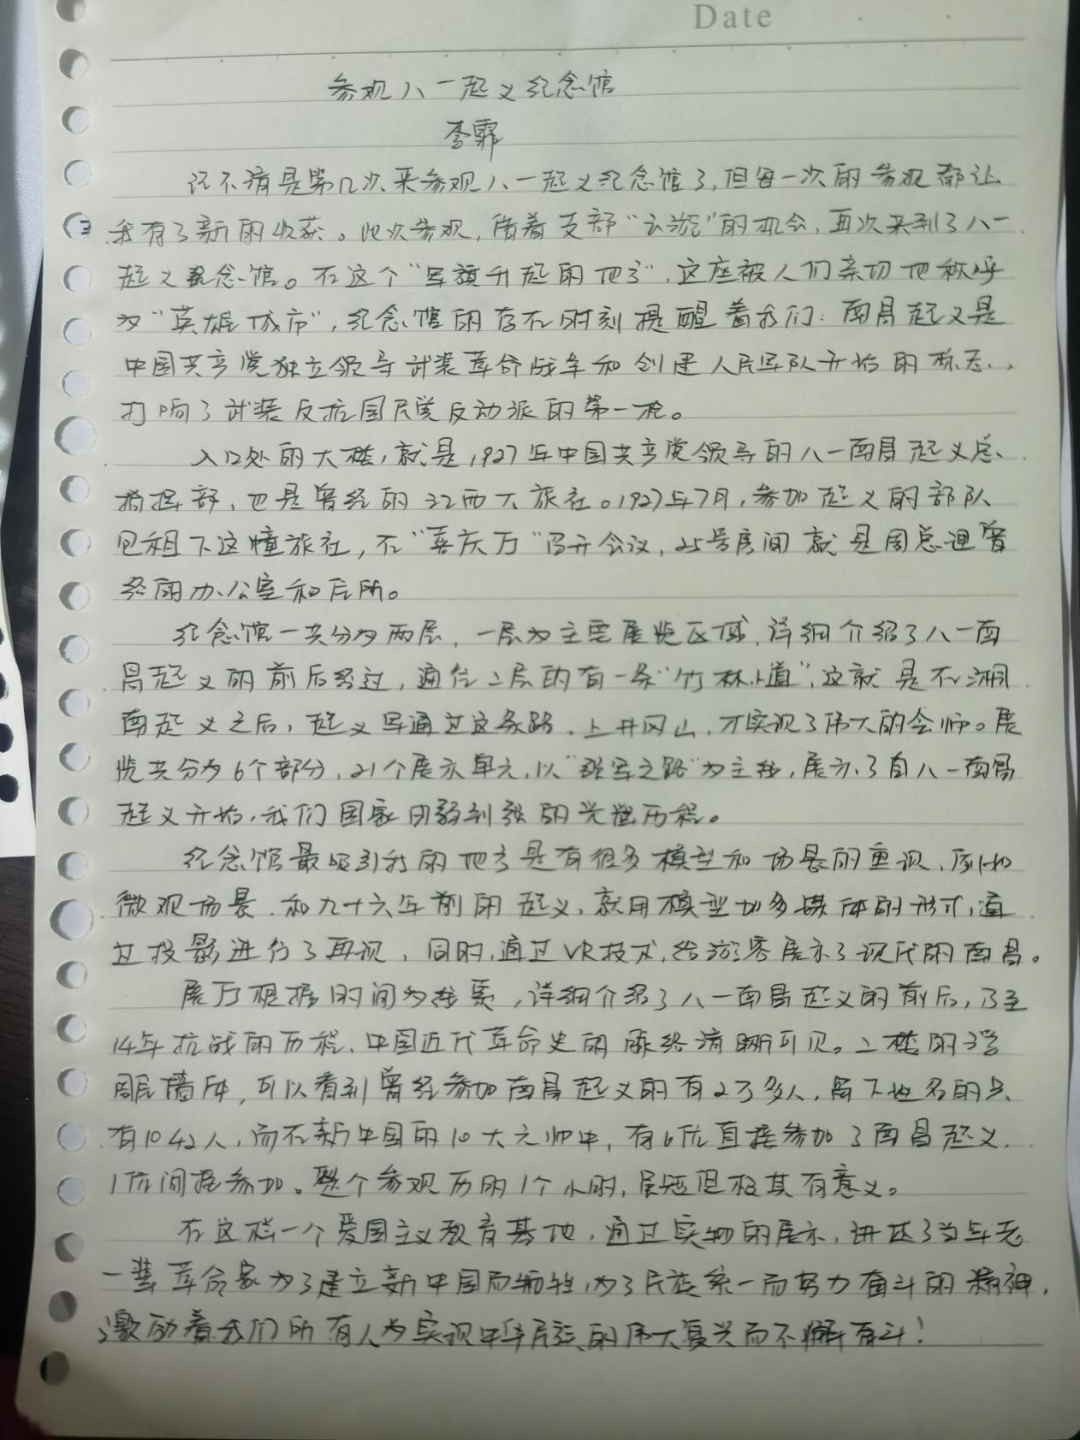 Date
参观八一起义纪念馆
李霏
记不清是第几次来参观八一起义纪念馆了,但每一次的参观都让
我有了新的收获。此次参观,借着支部“云游”的机会,再次来到了八一
起义纪念馆。在这个“军旗升起的地方”,这座被人们亲切地称呼
为“英雄城市”,纪念馆的存在时刻提醒着我们:南昌起义是
中国共产党独立领导武装革命战争和创建人民军队开始的标志,
打响了武装反抗国民党反动派的第一枪。
入口处的大楼,就是1927年中国共产党领导的八一南昌起义总
指挥部,也是曾经的江西大旅社。1927年7月,参加起义的部队
包租下这幢旅社,在“喜庆厅”召开会议,25号房间就是周总理曾
经的办公室和住所。
纪念馆一共分为两层,一层为主要展览区域,详细介绍了八一南
昌起义的前后经过,通往二层的有一条“竹林小道”,这就是在湖
南起义之后,起义军通过这条路,上井冈山,才实现了伟大的会师。展
览共分为6个部分,21个展示单元,以“强军之路”为主轴,展示了自八一南昌
起义开始,我们国家由弱到强的光辉历程。
纪念馆最吸引我的地方是有很多模型和场景的重现,原比
微观场景,和九十六年前的起义,就用模型加多媒体的形式,通
过投影进行了再现,同时,通过VR技术,给游客展示了现代的南昌。
展厅根据时间为线索,详细介绍了八一南昌起义的前后,乃至
14年抗战的历程,中国近代革命史的脉络清晰可见。二楼的浮
雕墙体,可以看到曾经参加南昌起义的有2万多人,留下姓名的只
有1042人,而在新中国的10大元帅中,有6位直接参加了南昌起义,
1位间接参加。整个参观历时1个小时,虽短但极其有意义。
在这样一个爱国主义教育基地,通过实物的展示,讲述了当年老
一辈革命家为了建立新中国而牺牲,为了民族统一而努力奋斗的精神,
激励着我们所有人为实现中华民族的伟大复兴而不懈奋斗!